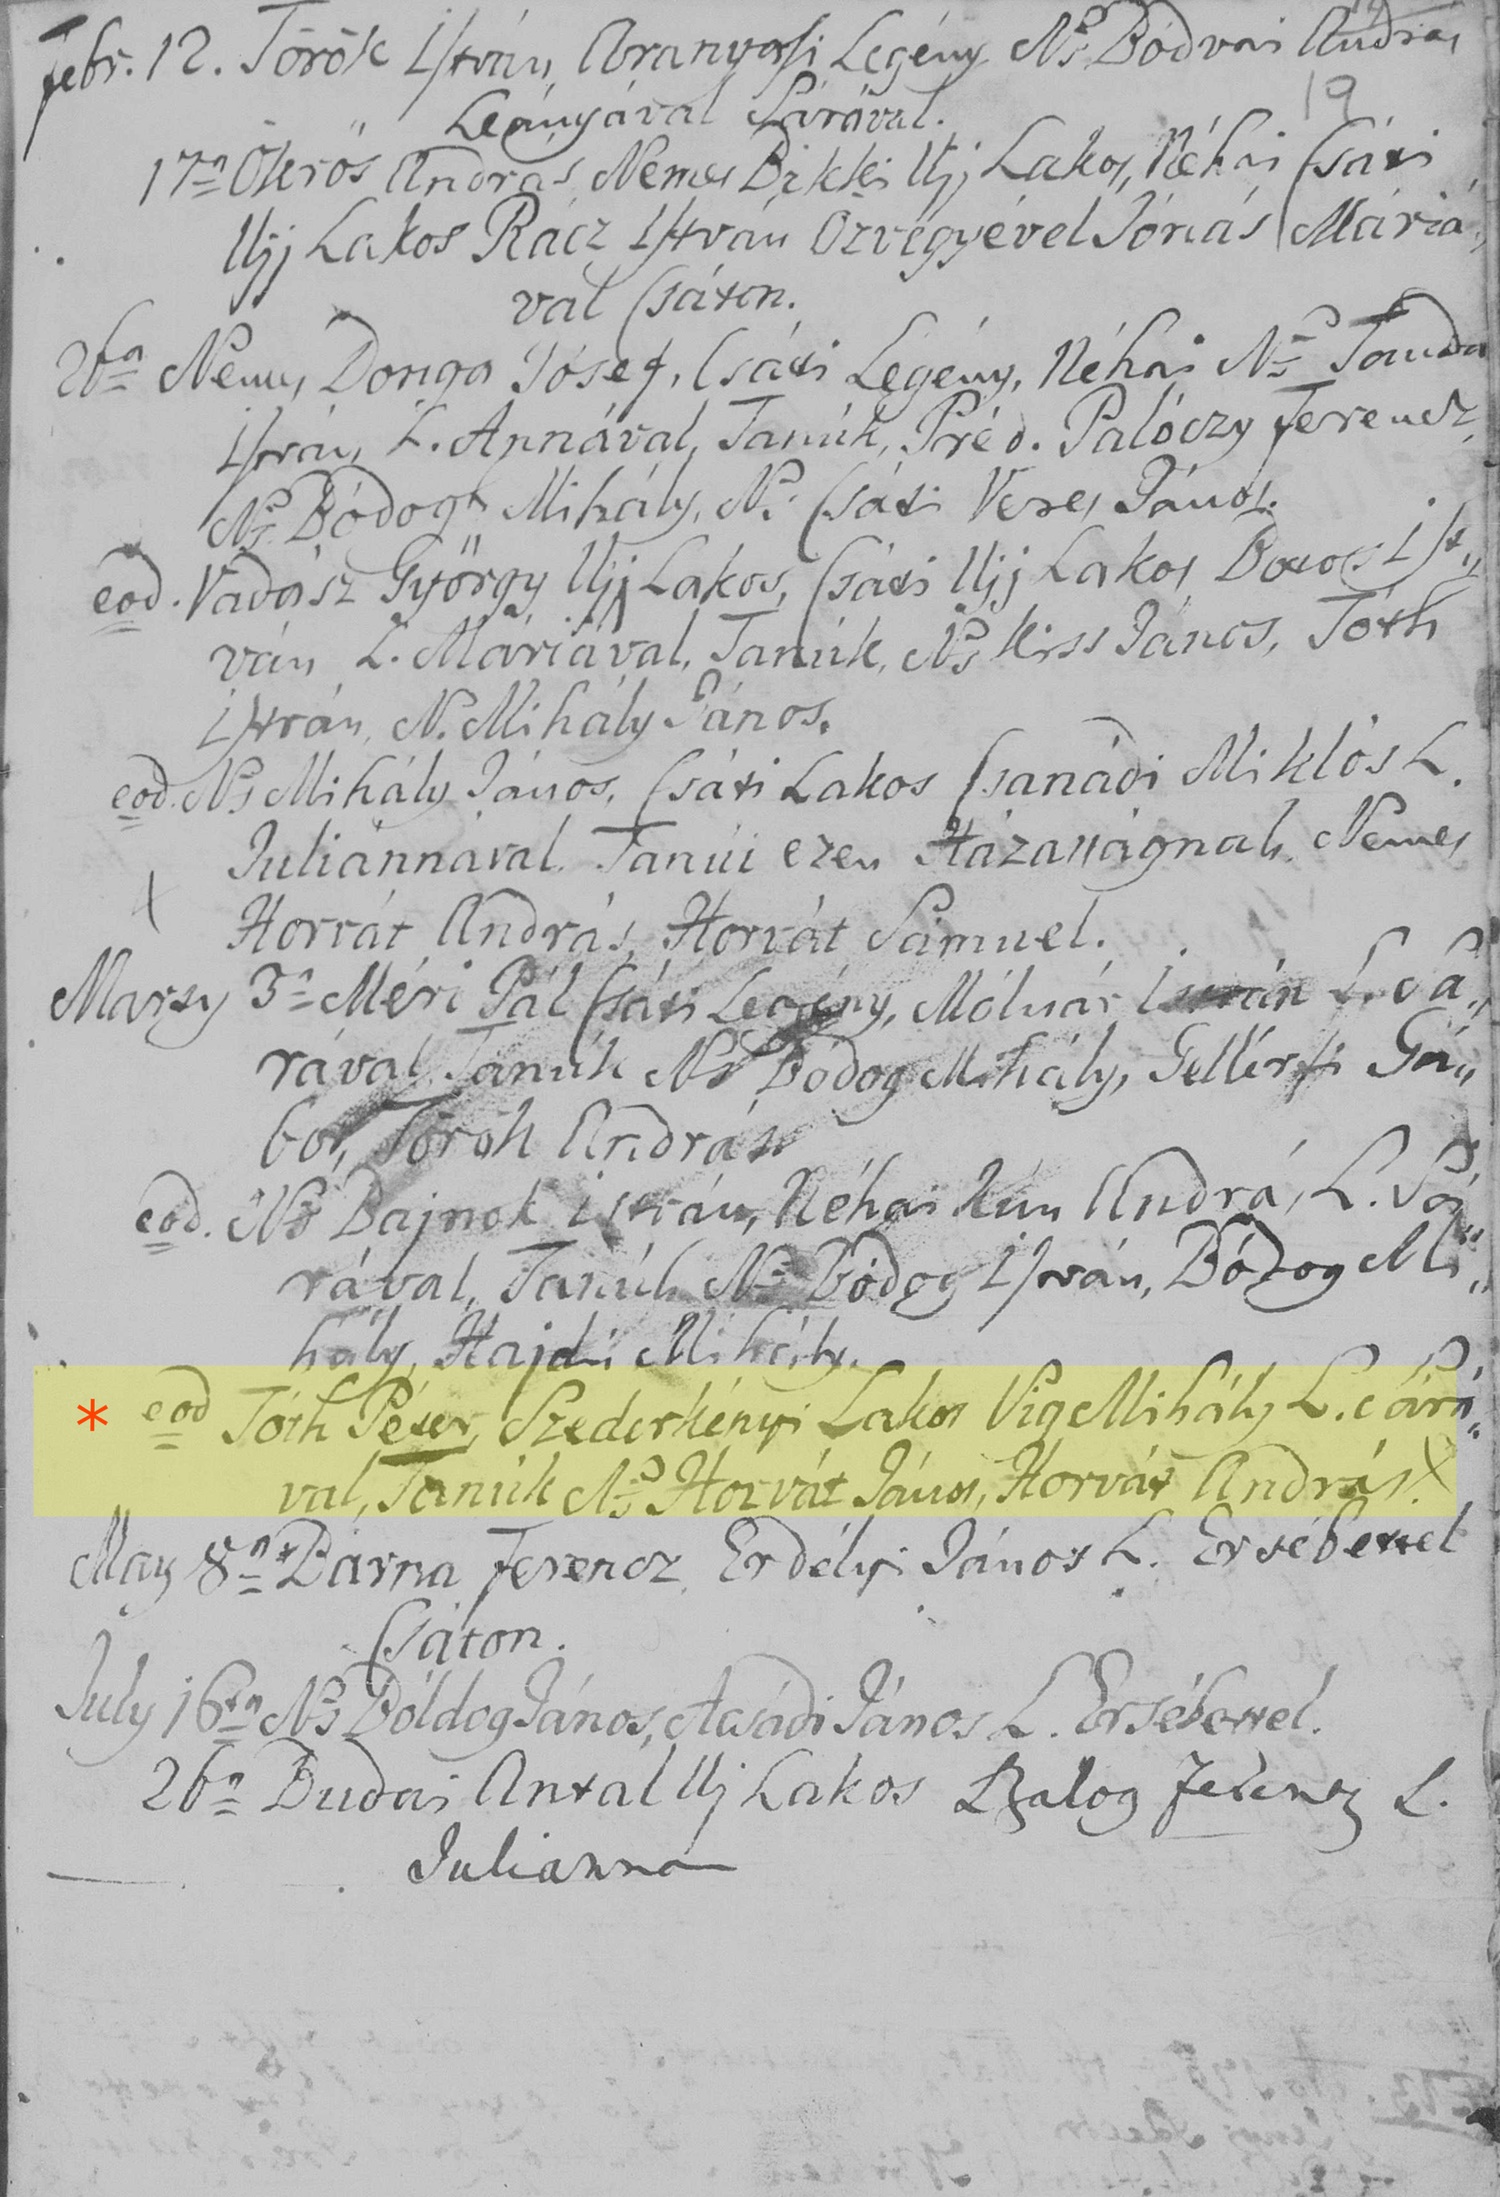 Febr. 12. Török István Aranyosi Legény Ns Bódvai András
19
Leányával Sárával.
17a Ökrös András Nemes Bikki Ujj Lakos, Néhai Csáti
Ujj Lakos Rácz István Özvegyével Jónás Máriá,,
val Csáton.
26a Nemes Donga Jósef, Csáti Legény, Néhai Ns
István L. Annával, Tanúk, Préd. Palóczy Ferencz,
Ns Bódog Mihály, N. Csáti Veres János.
eod. Vadász György Ujj Lakos, Csáti Ujj Lakos Ist,,
ván L. Máriával, Tanúk, Ns Kiss János, Tóth
István, N. Mihály János.
eod. Ns Mihály János, Csáti Lakos Csanádi Miklós L.
Juliánnával. Tanúi ezen Házasságnak Nemes
Horvát András, Horvát Sámuel.
Marzy 3a Méri Pál Csáti Legény, Mólnár István L. Sá,,
rával, Tanúk Ns Bódog Mihály, Gellérfi Gá,,
bor, Török András
eod. Ns Bajnok István, Néhai Kún András L. Sá,,
rával, Tanúk Ns Bódog István, Bódog Mi,,
hály, Hajdú Mihály.
* eod Tóth Péter, Szederkényi Lakos Vig Mihály L. Sárá,,
val, Tanúk Ns Horvát János, Horvát András.
May 8a Bárna Ferencz, Erdélyi János L. Ersébettel
Csáton.
July 16a Ns Bóldog János, Acsádi János L. Ersébettel.
26a Budai Antal Uj Lakos Balog Ferencz L.
Julianna